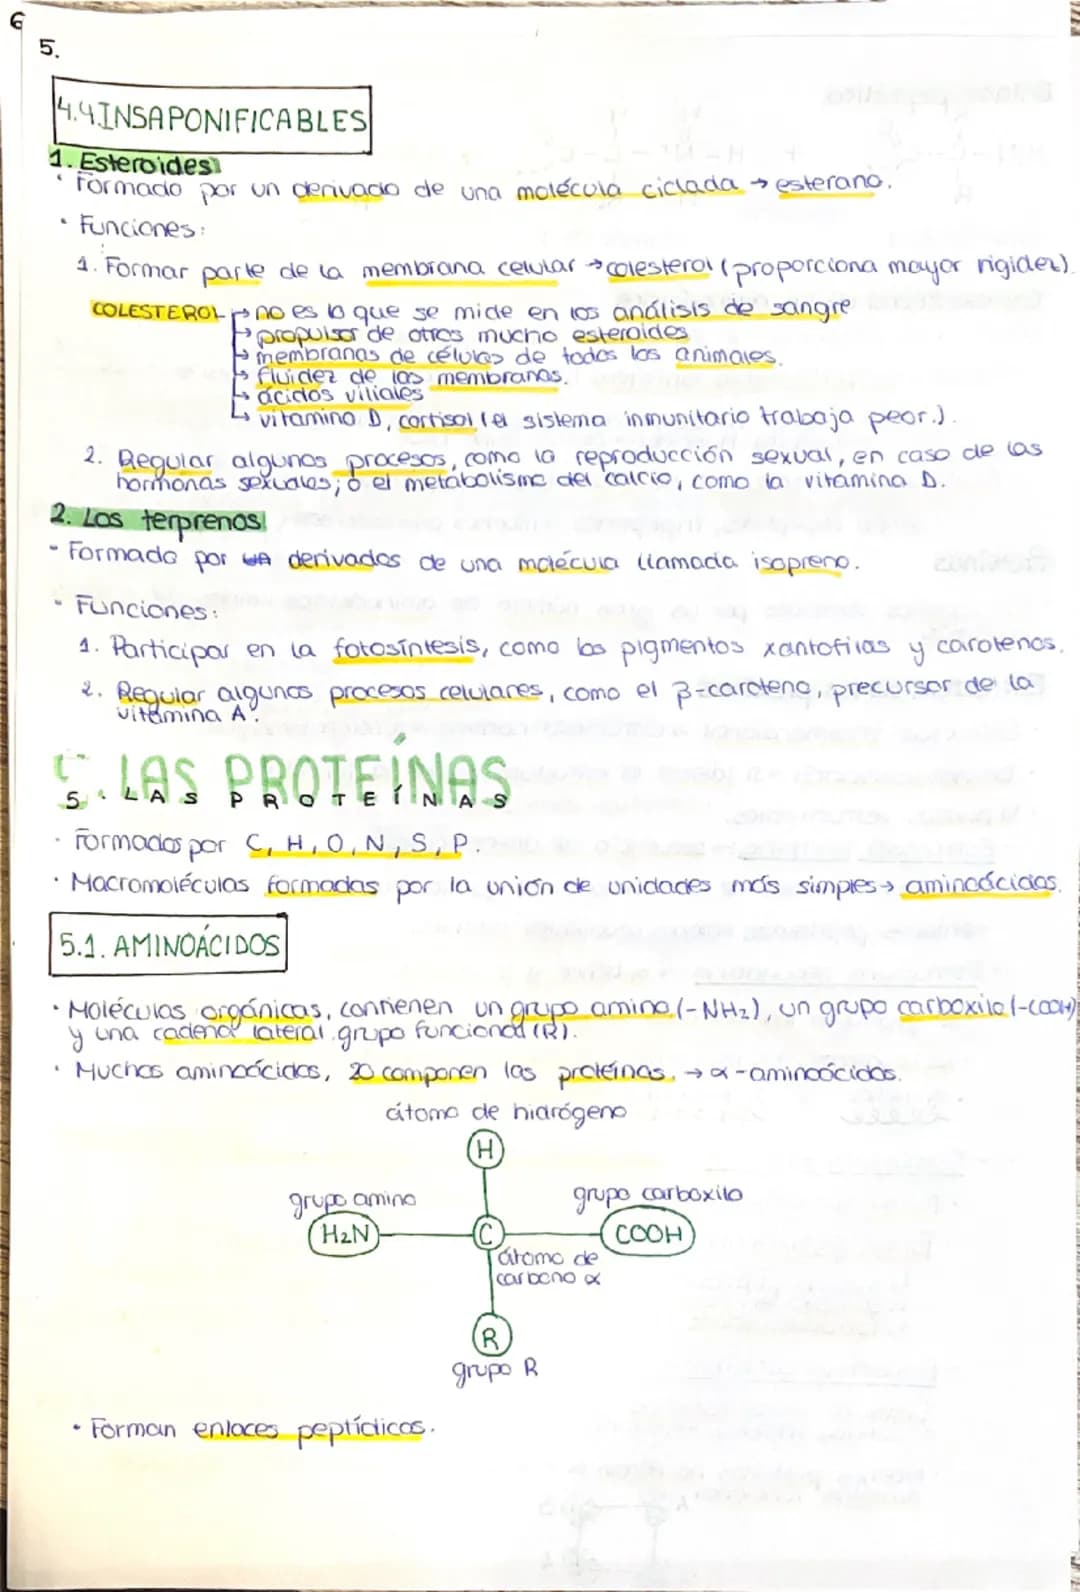 6
5.
4.4.INSAPONIFICABLES
1. Esteroides
· Formado por un derivado de una molécula ciclada → esterano.
· Funciones:
1. Formar parte de la membrana celular → colesterol (proporciona mayor rigidez).
COLESTEROL → no es lo que se mide en los análisis de sangre
→ propulsor de otros mucho esteroides
→ membranas de células de todos los animales.
→ fluidez de las membranas.
→ ácidos viliales
→ vitamina D, cortisol (el sistema inmunitario trabaja peor.).
2. Regular algunos procesos, como la reproducción sexual, en caso de las
hormonas sexuales; o el metabolismo del calcio, como la vitamina D.
2. Los terprenos
- Formado por derivados de una molécula llamada isopreno.
- Funciones:
1. Participar en la fotosíntesis, como los pigmentos xantofilas y carotenos.
2. Regular algunos procesos celulares, como el β-caroteno, precursor de la
vitamina A.
5. LAS PROTEÍNAS
· Formados por C, H, O, N, S, P.
· Macromoléculas formadas por la unión de unidades más simples → aminoácidos.
5.1. AMINOÁCIDOS
· Moléculas orgánicas, contienen un grupo amino (-NH2), un grupo carboxilo (-COOH)
y una cadena lateral grupo funcional (R).
· Muchos aminoácidos, 20 componen las proteínas. → α-aminoácidos.
átomo de hidrógeno
H
grupo amino grupo carboxilo
H2N C COOH
átomo de
carbono α
R
grupo R
· Forman enlaces peptídicos.